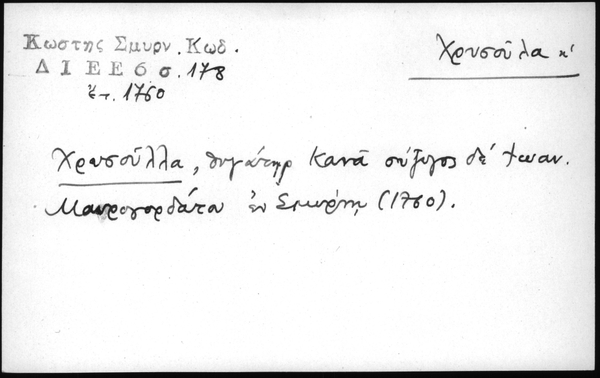 Κωστης Σμυρν. Κωδ.
Χρυσοῦλα κ'
ΔΙΕΕ6 σ. 178
ἔτ. 1760
Χρυσοῦλλα, θυγάτηρ Κανᾶ σύζυγος δέ Ἰωαν.
Μαυρογορδάτου ἐν Σμύρνῃ (1760).